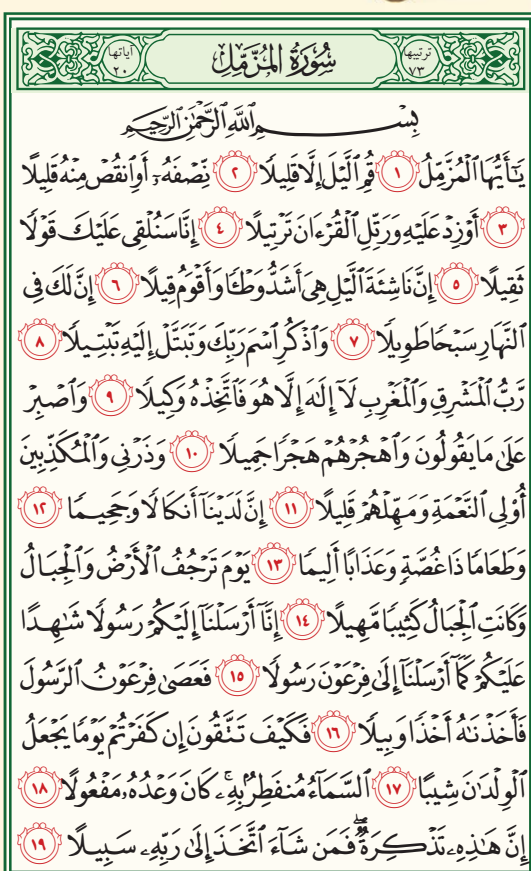 ترتيبها ٧٣ سُورَةُ الْمُزَّمِّلِ آياتها ٢٠
بِسْمِ ٱللَّهِ ٱلرَّحْمَٰنِ ٱلرَّحِيمِ
يَٰٓأَيُّهَا ٱلْمُزَّمِّلُ ١ قُمِ ٱلَّيْلَ إِلَّا قَلِيلًا ٢ نِّصْفَهُۥٓ أَوِ ٱنقُصْ مِنْهُ قَلِيلًا
٣ أَوْ زِدْ عَلَيْهِ وَرَتِّلِ ٱلْقُرْءَانَ تَرْتِيلًا ٤ إِنَّا سَنُلْقِى عَلَيْكَ قَوْلًا
ثَقِيلًا ٥ إِنَّ نَاشِئَةَ ٱلَّيْلِ هِىَ أَشَدُّ وَطْـًٔا وَأَقْوَمُ قِيلًا ٦ إِنَّ لَكَ فِى
ٱلنَّهَارِ سَبْحًا طَوِيلًا ٧ وَٱذْكُرِ ٱسْمَ رَبِّكَ وَتَبَتَّلْ إِلَيْهِ تَبْتِيلًا ٨
رَّبُّ ٱلْمَشْرِقِ وَٱلْمَغْرِبِ لَآ إِلَٰهَ إِلَّا هُوَ فَٱتَّخِذْهُ وَكِيلًا ٩ وَٱصْبِرْ
عَلَىٰ مَا يَقُولُونَ وَٱهْجُرْهُمْ هَجْرًا جَمِيلًا ١٠ وَذَرْنِى وَٱلْمُكَذِّبِينَ
أُو۟لِى ٱلنَّعْمَةِ وَمَهِّلْهُمْ قَلِيلًا ١١ إِنَّ لَدَيْنَآ أَنكَالًا وَجَحِيمًا ١٢
وَطَعَامًا ذَا غُصَّةٍ وَعَذَابًا أَلِيمًا ١٣ يَوْمَ تَرْجُفُ ٱلْأَرْضُ وَٱلْجِبَالُ
وَكَانَتِ ٱلْجِبَالُ كَثِيبًا مَّهِيلًا ١٤ إِنَّآ أَرْسَلْنَآ إِلَيْكُمْ رَسُولًا شَٰهِدًا
عَلَيْكُمْ كَمَآ أَرْسَلْنَآ إِلَىٰ فِرْعَوْنَ رَسُولًا ١٥ فَعَصَىٰ فِرْعَوْنُ ٱلرَّسُولَ
فَأَخَذْنَٰهُ أَخْذًا وَبِيلًا ١٦ فَكَيْفَ تَتَّقُونَ إِن كَفَرْتُمْ يَوْمًا يَجْعَلُ
ٱلْوِلْدَٰنَ شِيبًا ١٧ ٱلسَّمَآءُ مُنفَطِرٌۢ بِهِۦ ۚ كَانَ وَعْدُهُۥ مَفْعُولًا ١٨
إِنَّ هَٰذِهِۦ تَذْكِرَةٌ ۖ فَمَن شَآءَ ٱتَّخَذَ إِلَىٰ رَبِّهِۦ سَبِيلًا ١٩